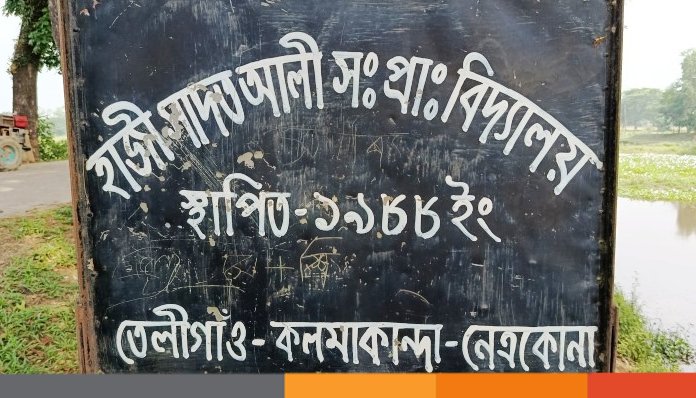 হাজী সাদত আলী সঃ প্রাঃ বিদ্যালয়
স্থাপিত - ১৯৮৮ ইং
তেলীগাঁও - কলমাকান্দা - নেত্রকোনা